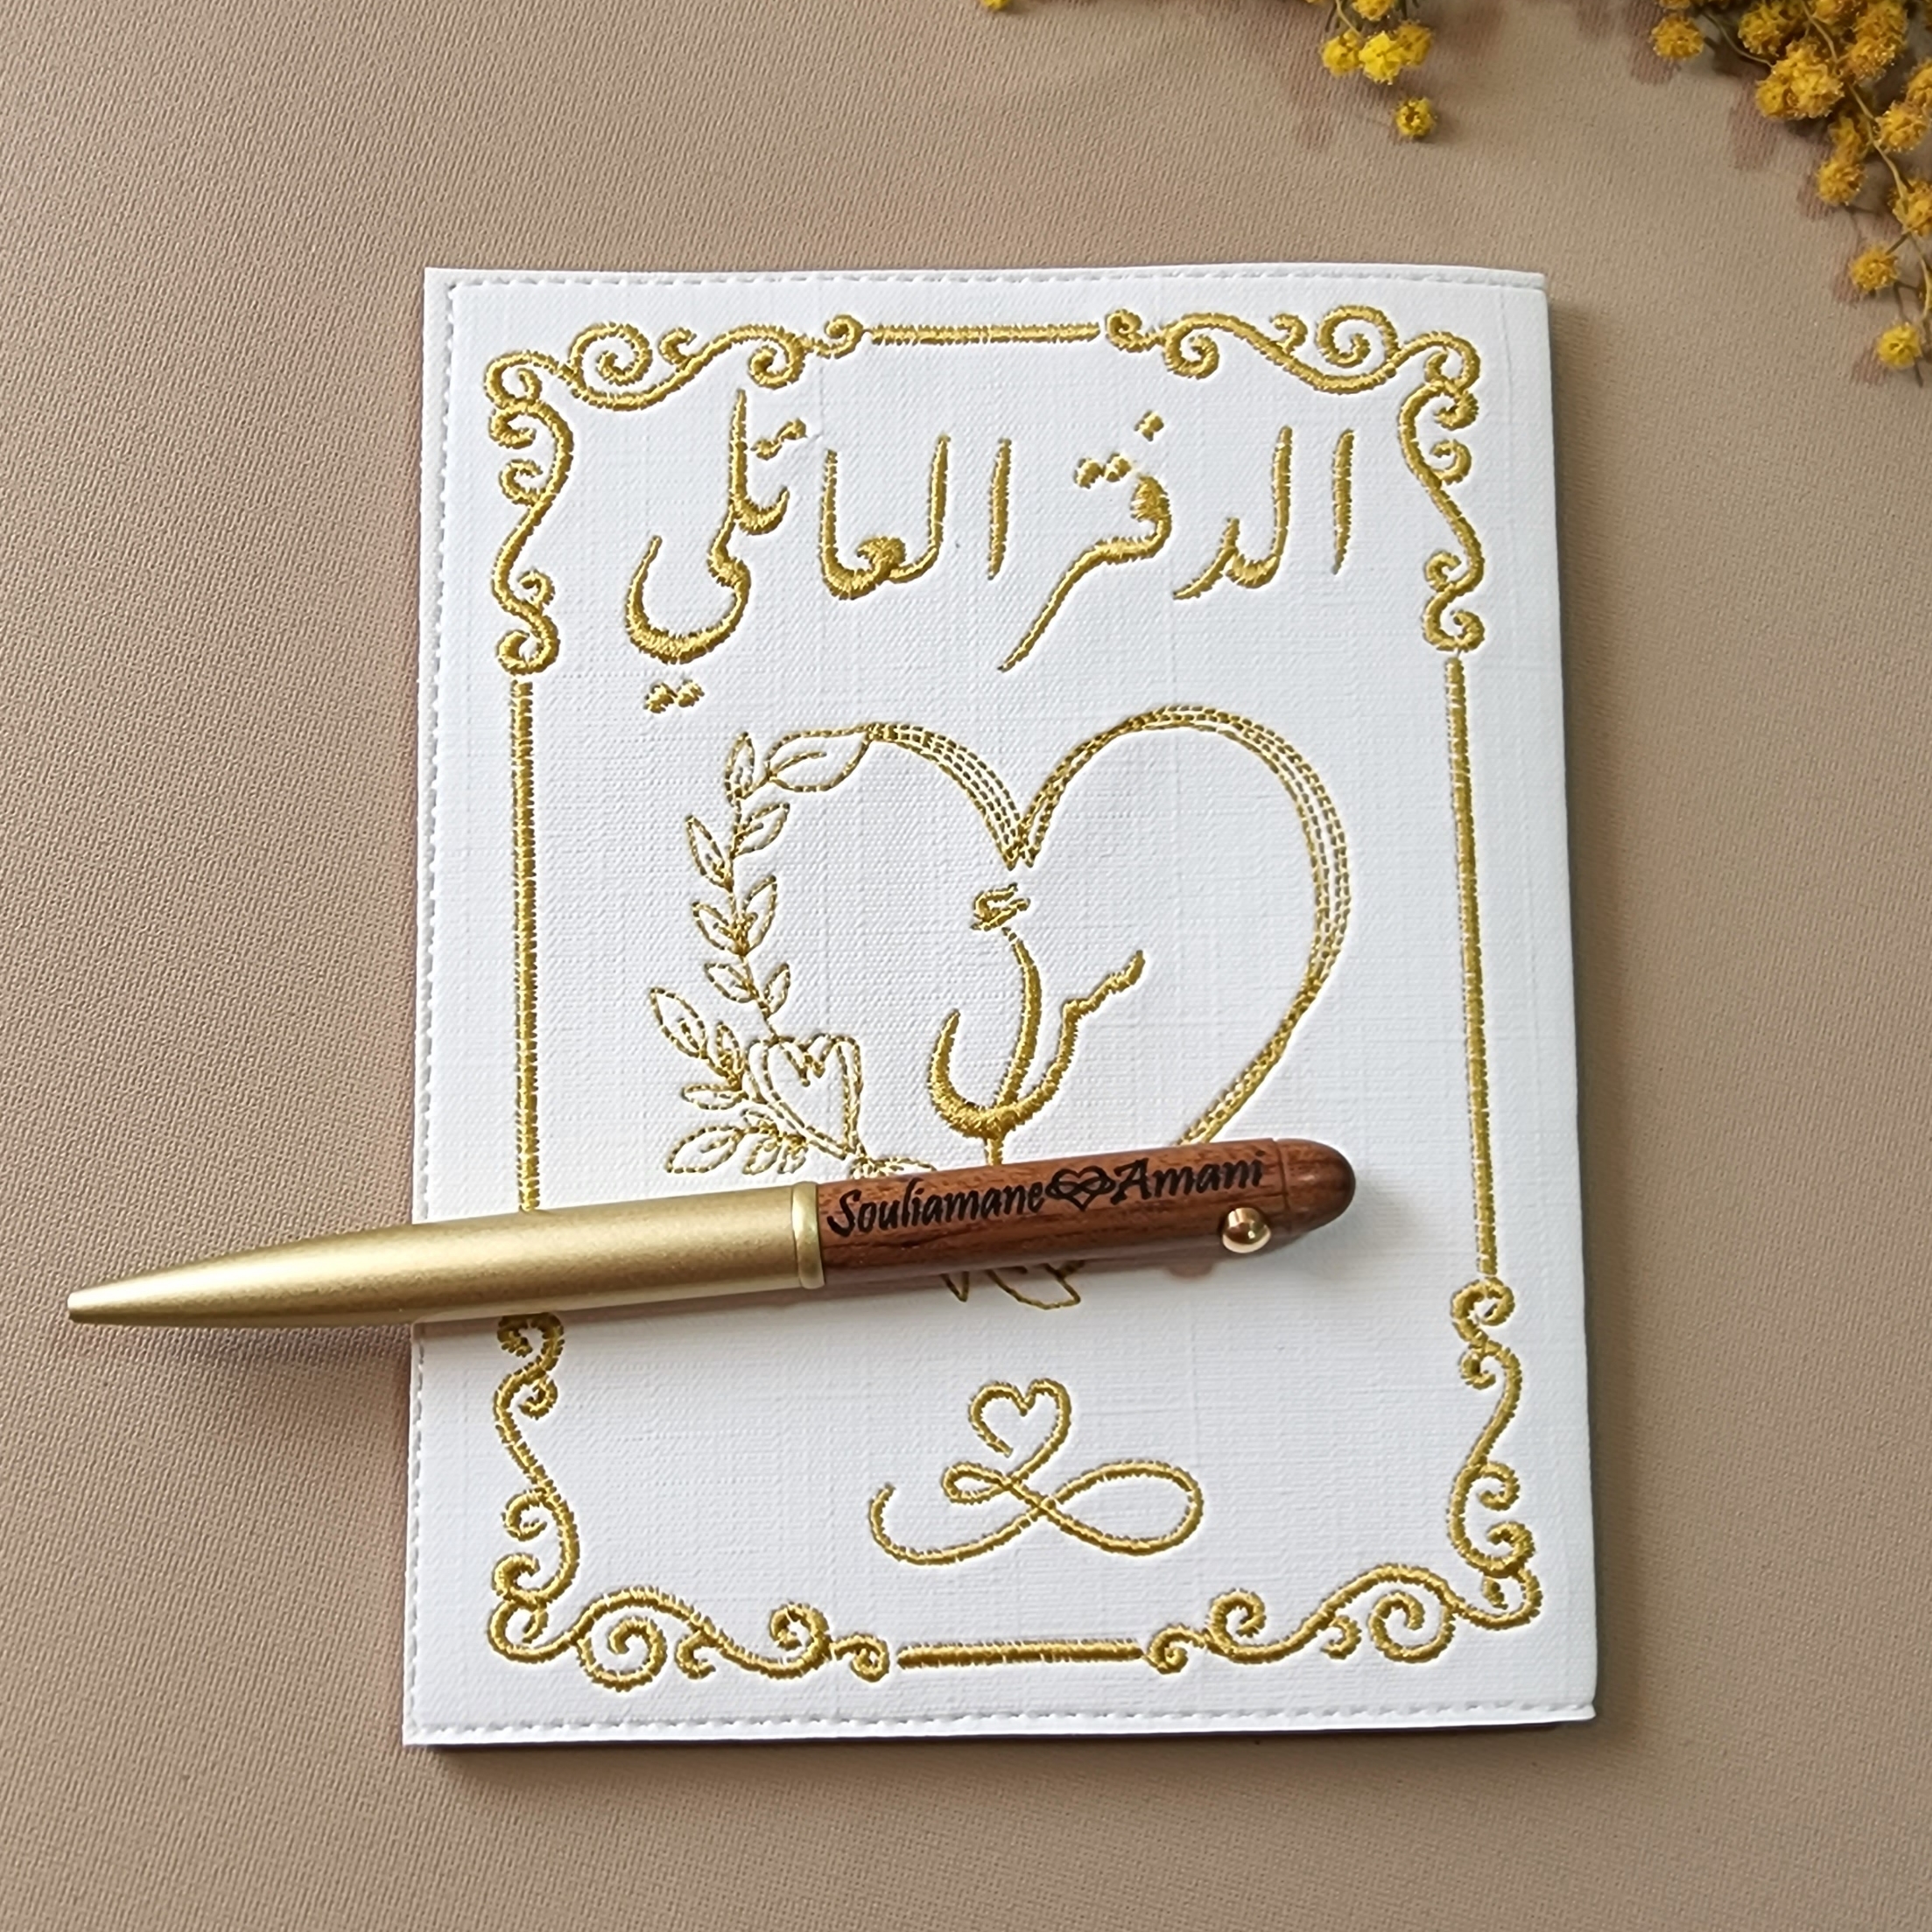 الدفتر العائلي
س أ
Souliamane Amani